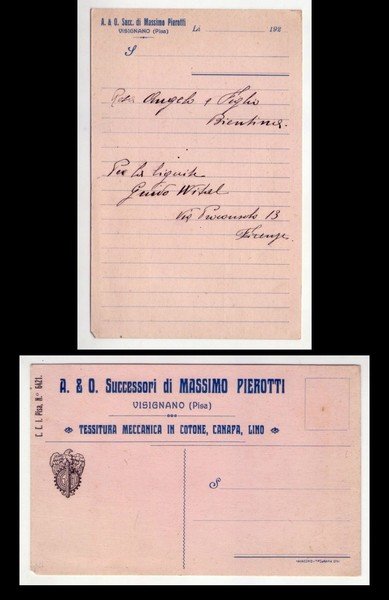 A. & O. Succ. di Massimo Pierotti
VISIGNANO (Pisa)
Lì 192
S
Angelo & Figlio
Bientina.
Per la lignite
Guido
Via 13
Firenze
C. C. I. Pisa, N.° 6421.
A. & O. Successori di MASSIMO PIEROTTI
VISIGNANO (Pisa)
TESSITURA MECCANICA IN COTONE, CANAPA, LINO
S